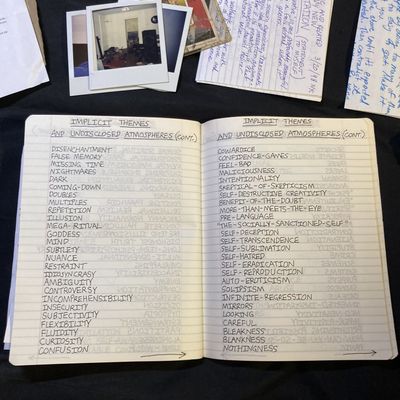 IMPLICIT THEMES
AND UNDISCLOSED ATMOSPHERES (CONT.)
DISENCHANTMENT
FALSE MEMORY
MISSING TIME
NIGHTMARES
DARK
COMING-DOWN
DOUBLES
MULTIPLES
REPETITION
ILLUSION
MEGA-RITUAL
GODDESS
MIND
SUBTLETY
NUANCE
RESTRAINT
IDIOSYNCRASY
AMBIGUITY
CONTROVERSY
INCOMPREHENSIBILITY
INSECURITY
SUBJECTIVITY
FLEXIBILITY
FLUIDITY
CURIOSITY
CONFUSION
IMPLICIT THEMES
AND UNDISCLOSED ATMOSPHERES (CONT.)
COWARDICE
CONFIDENCE-GAMES
FEEL-BAD
MALICIOUSNESS
INTENTIONALITY
SKEPTICAL-OF-SKEPTICISM
SELF-DESTRUCTIVE CREATIVITY
BENEFIT-OF-THE-DOUBT
MORE-THAN-MEETS-THE-EYE
PRE-LANGUAGE
"THE-SOCIALLY-SANCTIONED-SELF"
SELF-DECEPTION
SELF-TRANSCENDENCE
SELF-SUBLIMATION
SELF-HATRED
SELF-ERADICATION
SELF-REPRODUCTION
AUTO-EROTICISM
SOLIPSISM
INFINITE-REGRESSION
MIRRORS
LOOKING
CAREFUL
BLEAKNESS
BLANKNESS
NOTHINGNESS